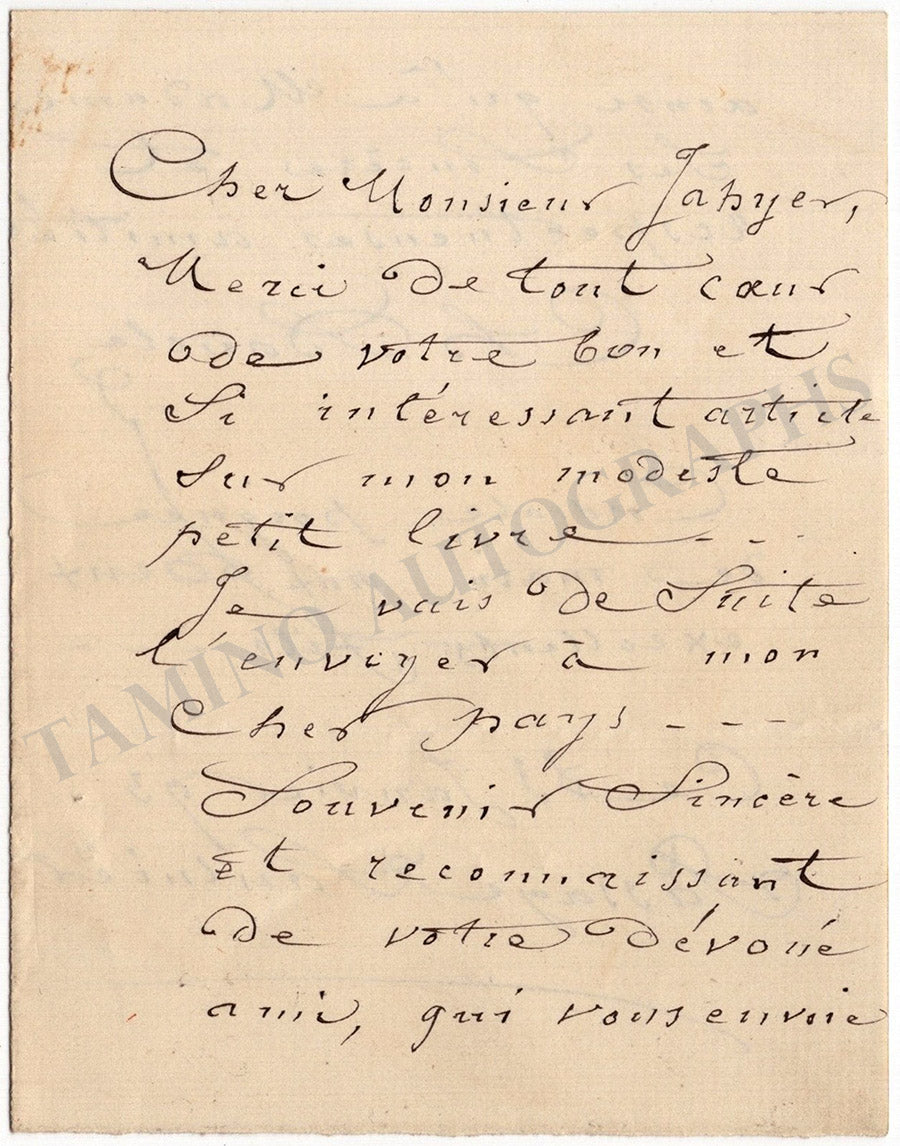 Cher Monsieur Jahyer,
Merci de tout cœur
de votre bon et
Si intéressant article
sur mon modeste
petit livre - - -
Je vais de Suite
l'envoyer à mon
Cher pays - - -
Souvenir Sincère
Et reconnaissant
de votre dévoué
ami, qui vous envoie
TAMINO AUTOGRAPHS